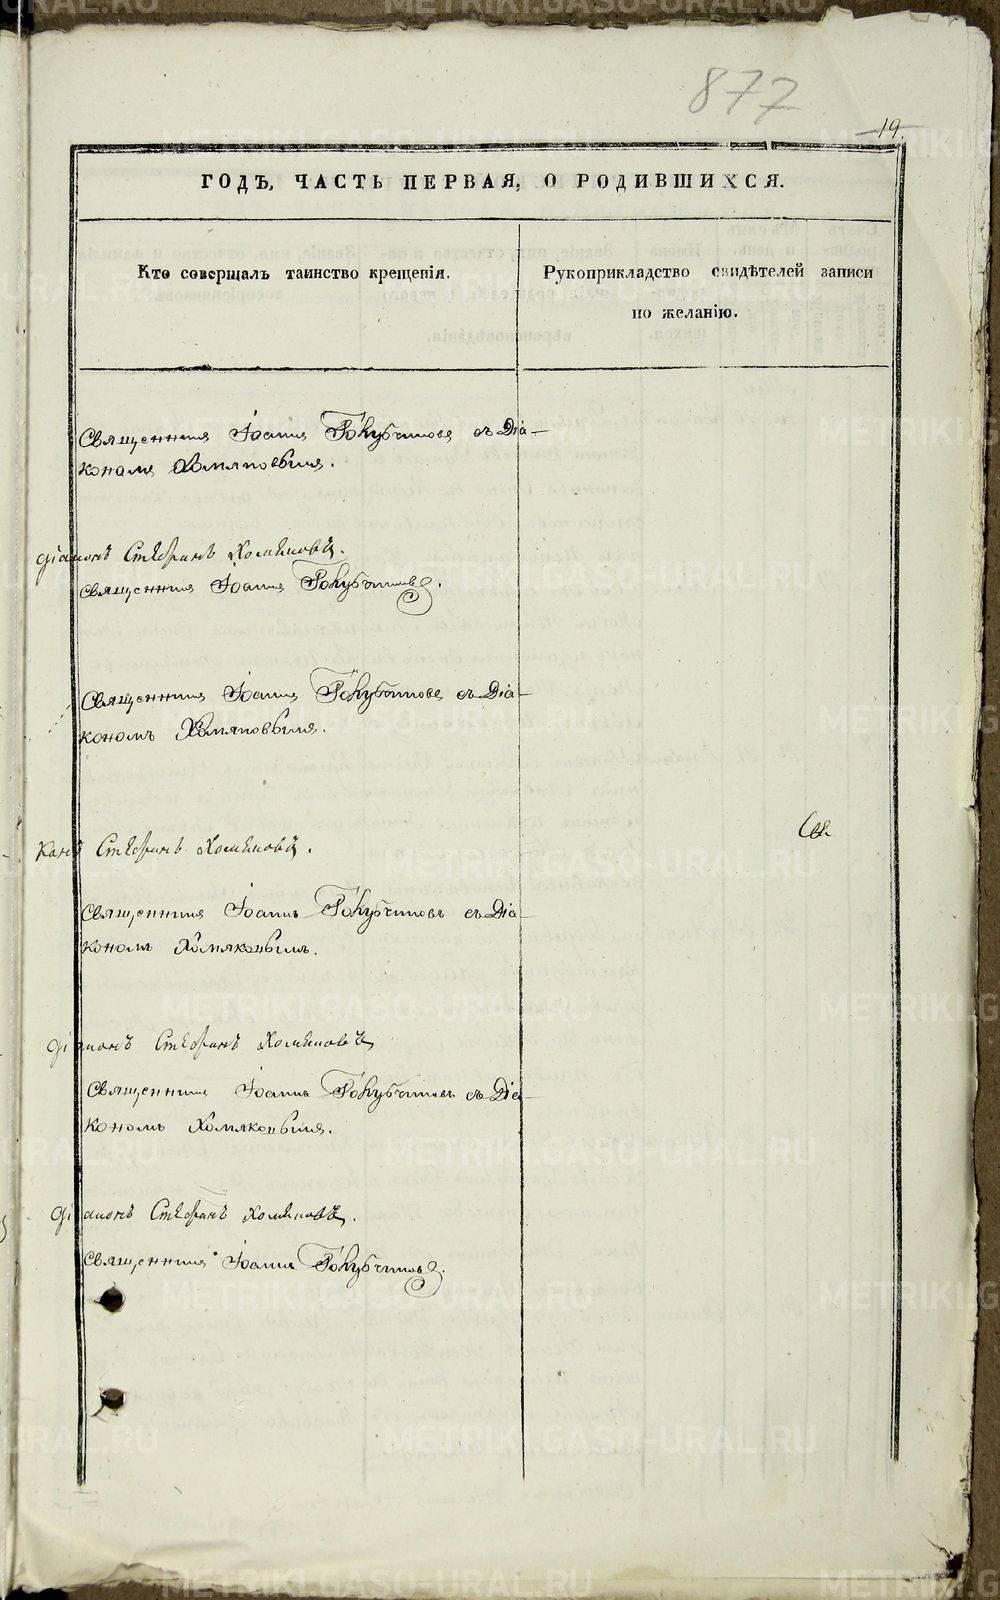 877
19.
ГОДЪ, ЧАСТЬ ПЕРВАЯ, О РОДИВШИХСЯ.
Кто совершалъ таинство крещенія.
Рукоприкладство свидѣтелей записи
по желанію.
Священникъ Іоаннъ Голубчиковъ съ Діа-
кономъ Хомяковымъ.
діаконъ Стефанъ Хомяковъ.
Священникъ Іоаннъ Голубчиковъ.
Священникъ Іоаннъ Голубчиковъ съ Діа-
кономъ Хомяковымъ.
конъ Стефанъ Хомяковъ.
Священникъ Іоаннъ Голубчиковъ съ Діа-
кономъ Хомяковымъ.
діаконъ Стефанъ Хомяковъ
Священникъ Іоаннъ Голубчиковъ съ Діа-
кономъ Хомяковымъ.
діаконъ Стефанъ Хомяковъ.
Священникъ Іоаннъ Голубчиковъ.
METRIKI.GASO-URAL.RU